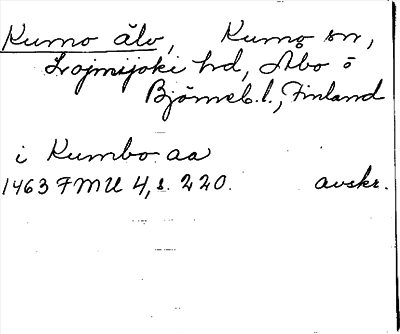 Kumo älv, Kumo sn,
Loimijoki hd, Åbo o
Björneb. l., Finland
i Kumbo aa
1463 FMU 4, s. 220. avskr.